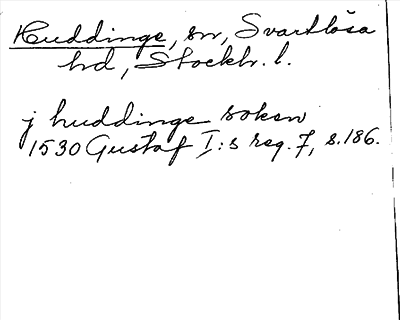 Huddinge, sn, Svartlösa
hd, Stockh. l.
j huddinge soken
1530 Gustaf I:s reg. 7, s. 186.